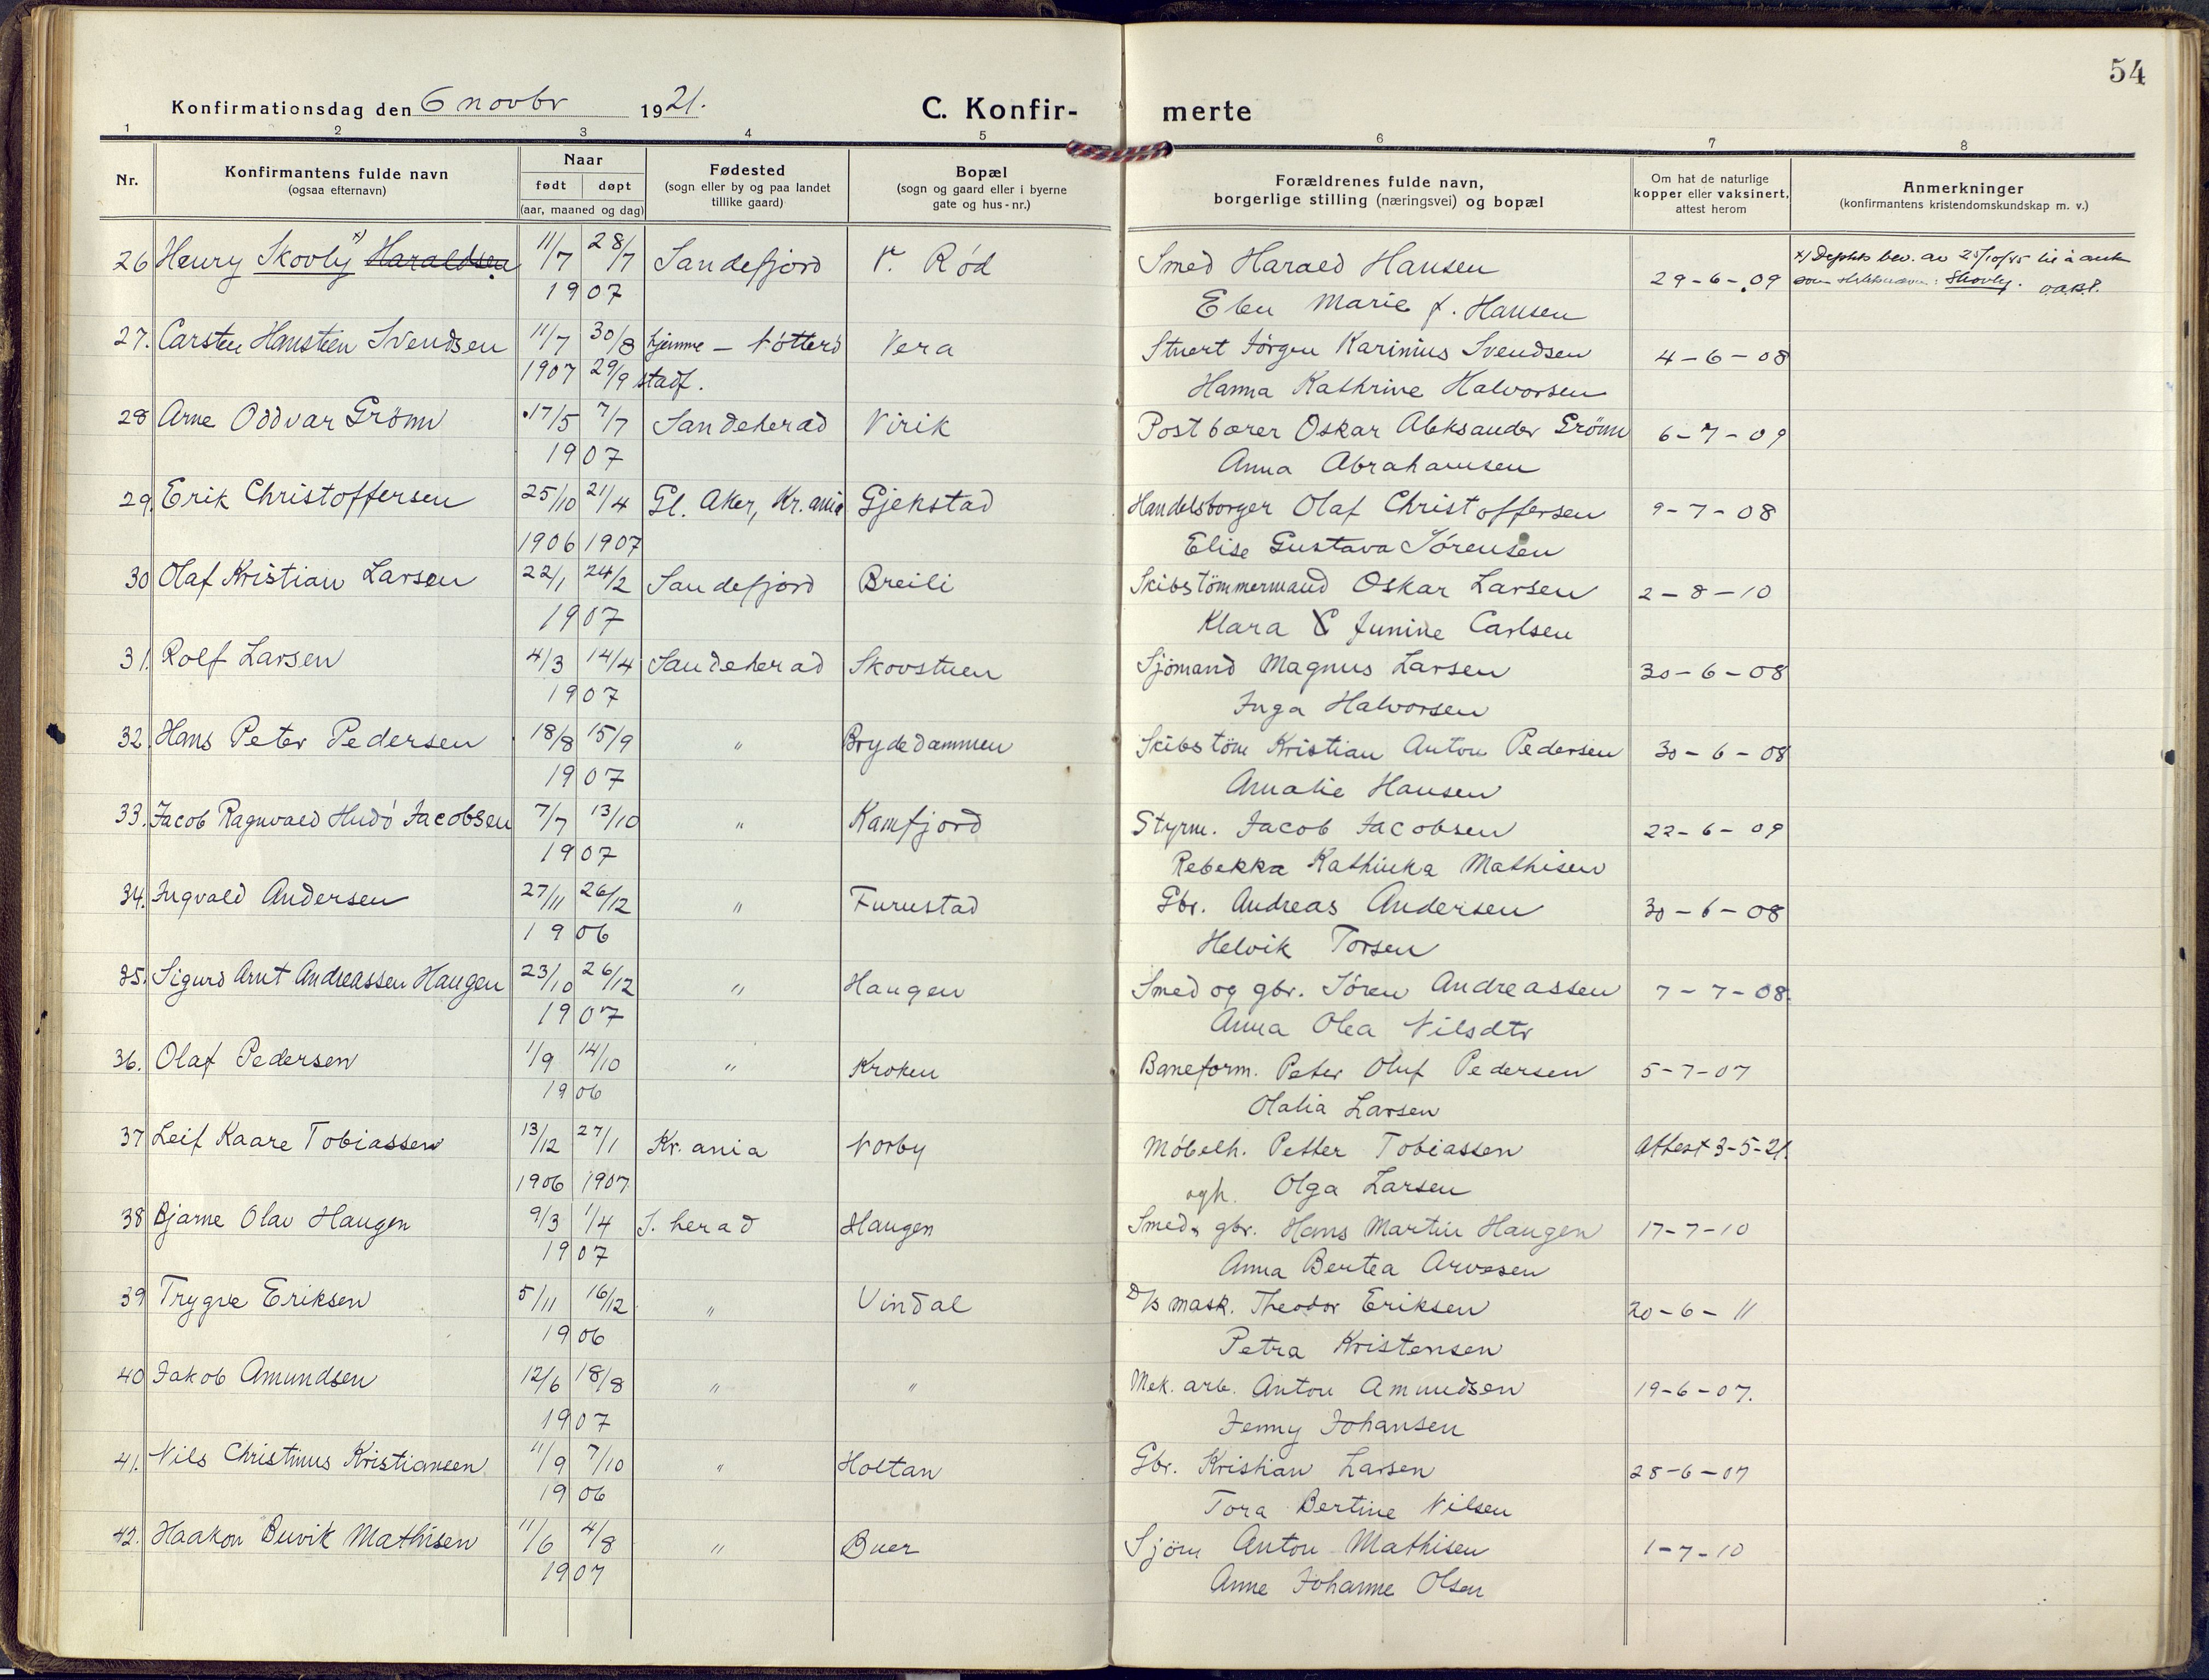 54
Konfirmationsdag den 6 novbr 1921.
C. Konfir- merte
1 2 3 4 5 6 7 8
Nr.
Konfirmantens fulde navn
(ogsaa efternavn)
Naar
født døpt
(aar, maaned og dag)
Fødested
(sogn eller by og paa landet
tillike gaard)
Bopæl
(sogn og gaard eller i byerne
gate og hus-nr.)
Forældrenes fulde navn,
borgerlige stilling (næringsvei) og bopæl
Om hat de naturlige
kopper eller vaksinert,
attest herom
Anmerkninger
(konfirmantens kristendomskundskap m. v.)
26 Henry Skovly x) Haraldsen 11/7 28/7 Sandefjord V. Rød Smed Harald Hansen 29-6-09 x) Depkts bev. av 25/10/45 til å anta
1907 Elen Marie f. Hansen som slektsnavn: Skovly.
27. Carsten Hansteen Svendsen 11/7 30/8 hjemme - Nøtterø Vera Stuert Jørgen Karinius Svendsen 4-6-08
1907 29/9 stadf. Hanna Kathrine Halvorsen
28 Arne Oddvar Grönn 17/5 7/7 Sandeherad Virik Postbærer Oskar Aleksander Grönn 6-7-09
1907 Anna Abrahamsen
29. Erik Christoffersen 25/10 21/4 Gl. Aker, Kr.ania Gjekstad Handelsborger Olaf Christoffersen 9-7-08
1906 1907 Elise Gustava Sörensen
30 Olaf Kristian Larsen 22/1 24/2 Sandefjord Breili Skibstömmermand Oskar Larsen 2-8-10
1907 Klara Junine Carlsen
31. Rolf Larsen 4/3 14/4 Sandeherad Skovstuen Sjömand Magnus Larsen 30-6-08
1907 Inga Halvorsen
32. Hans Peter Pedersen 18/8 15/9 " Brydedammen Skibstöm Kristian Anton Pedersen 30-6-08
1907 Amalie Hansen
33. Jacob Ragnvald Hudö Jacobsen 7/7 13/10 " Kamfjord Styrm. Jacob Jacobsen 22-6-09
1907 Rebekka Kathinka Mathisen
34. Ingvald Andersen 27/11 26/12 " Furustad Gbr. Andreas Andersen 30-6-08
1906 Helvik Torsen
35. Sigurd Arnt Andreassen Haugen 23/10 26/12 " Haugen Smed og gbr. Sören Andreassen 7-7-08.
1907 Anna Olea Nilsdtr
36. Olaf Pedersen 1/9 14/10 " Kroken Baneform. Peter Oluf Pedersen 5-7-07
1906 Olalia Larsen
37 Leif Kaare Tobiassen 13/12 27/1 Kr.ania Norby Möbelh. Petter Tobiassen Attest 3-5-21.
1906 1907 Olga Larsen
38 Bjarne Olav Haugen 9/3 1/4 S. herad Haugen Smed, gbr. Hans Martin Haugen 17-7-10
1907 Anna Bertea Arvesen
39 Trygve Eriksen 5/11 16/12 " Vindal D/s mask. Theodor Eriksen 20-6-11
1906 Petra Kristensen
40 Jakob Amundsen 12/6 18/8 " " Mek. arb. Anton Amundsen 19-6-07.
1907 Jenny Johansen
41. Nils Christinus Kristiansen 11/9 7/10 " Holtan Gbr. Kristian Larsen 28-6-07
1906 Tora Bertine Nilsen
42. Haakon Buvik Mathisen 11/6 4/8 " Buer Sjöm Anton Mathisen 1-7-10
1907 Anne Johanne Olsen